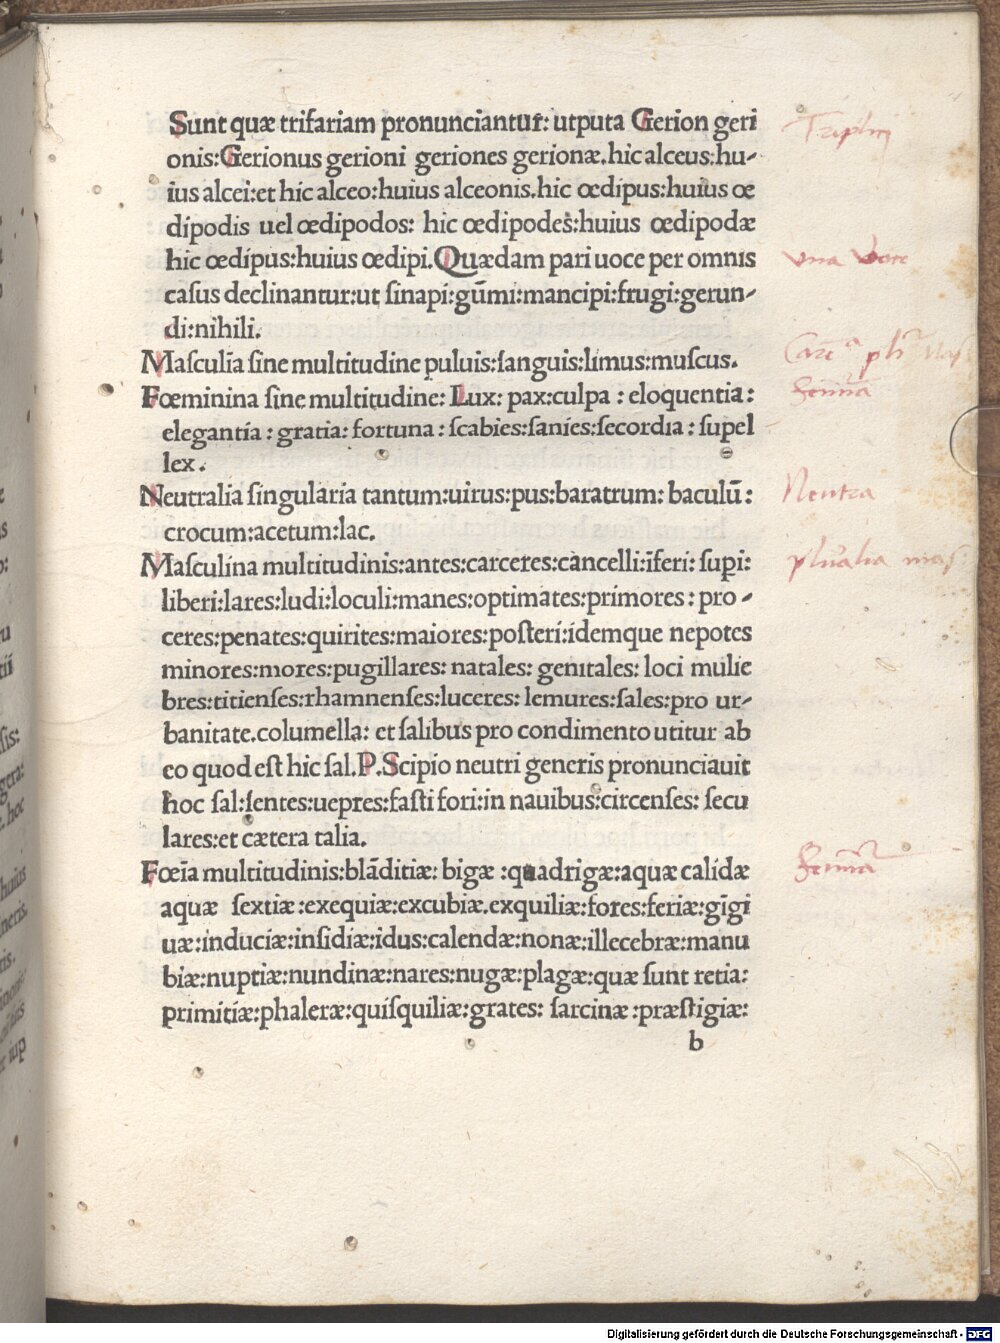 Sunt quæ trifariam pronunciantur: utputa Gerion geri
onis:Gerionus gerioni geriones gerionæ.hic alceus:hu-
ius alcei:et hic alceo:huius alceonis.hic œdipus:huius œ
dipodis uel œdipodos: hic œdipodes:huius œdipodæ
hic œdipus:huius œdipi.Quædam pari uoce per omnis
casus declinantur:ut sinapi:gūmi:mancipi:frugi:gerun-
di:nihili.
Masculīa sine multitudine puluis:sanguis:limus:muscus.
Fœminina sine multitudine: Lux: pax:culpa : eloquentia:
elegantia : gratia: fortuna : scabies:sanies:secordia : supel
lex.
Neutralia singularia tantum:uirus:pus:baratrum: baculū:
crocum:acetum:lac.
Masculina multitudinis:antes:carceres:cancelli:īferi: supi:
liberi:lares:ludi:loculi:manes:optimates:primores : pro -
ceres:penates:quirites:maiores:posteri:idemque nepotes
minores:mores:pugillares: natales: genitales: loci mulie
bres:titienses:rhamnenses:luceres: lemures:sales:pro ur-
banitate.columella: et salibus pro condimento utitur ab
eo quod est hic sal.P.Scipio neutri generis pronunciauit
hoc sal:sentes:uepres:fasti fori:in nauibus:circenses: secu
lares:et cætera talia.
Fœīa multitudinis:blāditiæ: bigæ :quadrigæ:aquæ calidæ
aquæ sextiæ:exequiæ:excubiæ.exquiliæ:fores:feriæ:gīgi
uæ:induciæ:insidiæ:idus:calendæ:nonæ:illecebræ:manu
biæ:nuptiæ:nundinæ:nares:nugæ:plagæ:quæ sunt retia:
primitiæ:phaleræ:quisquiliæ:grates: sarcinæ :præstigiæ:
b
vna voce
Neutra
pluralia mas
Digitalisierung gefördert durch die Deutsche Forschungsgemeinschaft - DFG